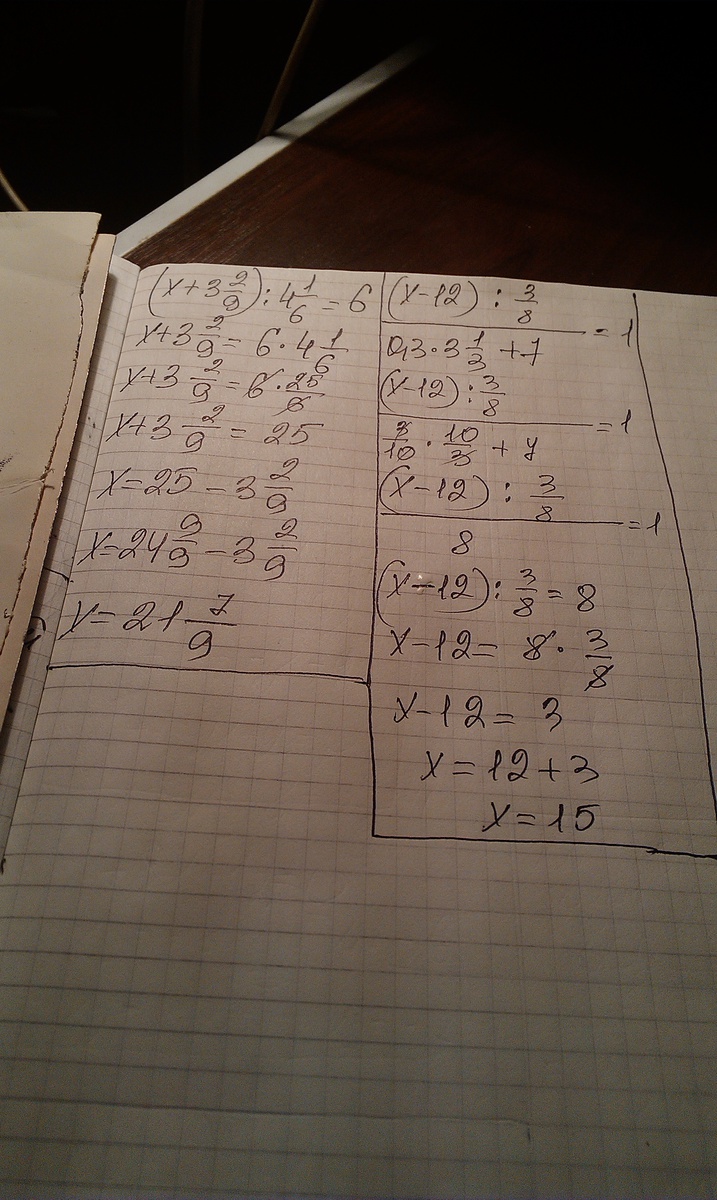 (x+3 2/9) : 4 1/6 = 6
x+3 2/9 = 6 · 4 1/6
x+3 2/9 = 6 · 25/6
x+3 2/9 = 25
x = 25 − 3 2/9
x = 24 9/9 − 3 2/9
x = 21 7/9
(x−12) : 3/8
———————— = 1
0,3 · 3 1/3 + 7
(x−12) : 3/8
———————— = 1
3/10 · 10/3 + 7
(x−12) : 3/8
———————— = 1
8
(x−12) : 3/8 = 8
x−12 = 8 · 3/8
x−12 = 3
x = 12 + 3
x = 15